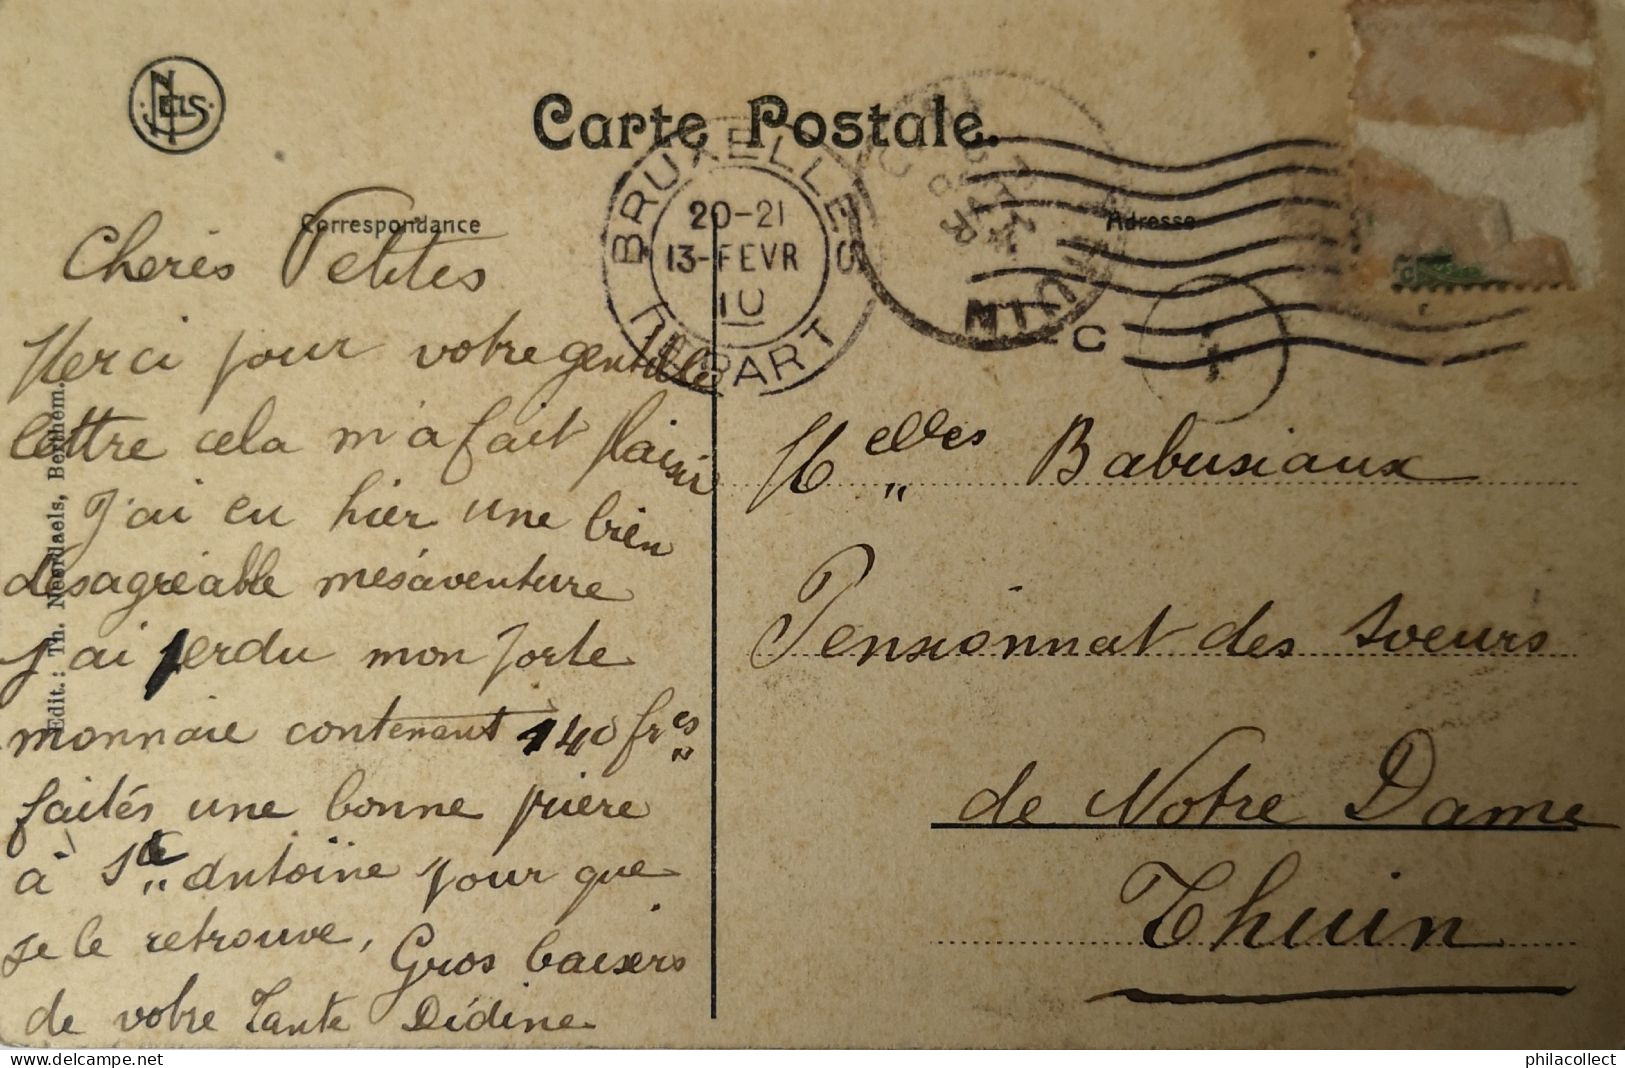 NELS
Carte Postale.
Correspondance
Adresse
BRUXELLES
20-21
13-FEVR
10
DEPART
THUIN
C
1
Chères Petites
Merci pour votre gentille
lettre cela m'a fait plaisir
J'ai eu hier une bien
desagréable mésaventure
J'ai perdu mon porte
monnaie contenant 140 frcs
faités une bonne prière
à St Antoine pour que
je le retrouve, Gros baisers
de votre Tante Didine
Melles Babusiaux
Pensionnat des Soeurs
de Notre Dame
Thuin
Edit.: Th. Neerdaels, Berchem.
philacollect